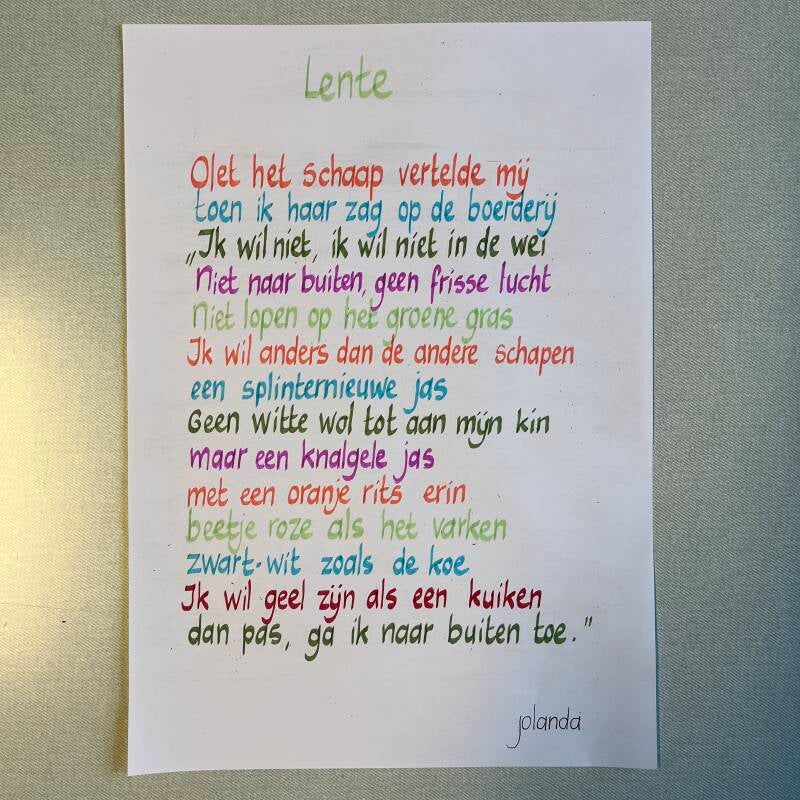 Lente
Olet het schaap vertelde mij
toen ik haar zag op de boerderij
„Ik wil niet, ik wil niet in de wei
Niet naar buiten, geen frisse lucht
Niet lopen op het groene gras
Ik wil anders dan de andere schapen
een splinternieuwe jas
Geen witte wol tot aan mijn kin
maar een knalgele jas
met een oranje rits erin
beetje roze als het varken
zwart-wit zoals de koe
Ik wil geel zijn als een kuiken
dan pas, ga ik naar buiten toe."
jolanda